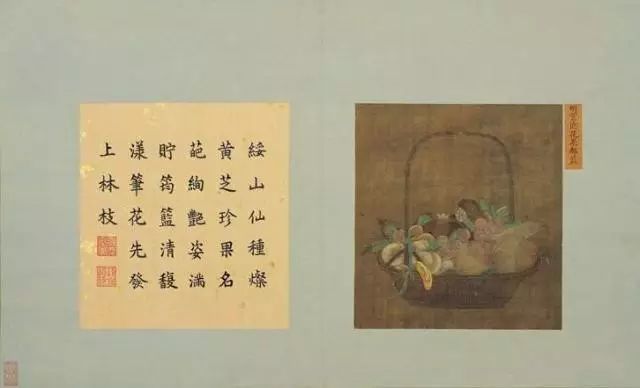 綏山仙種燦
黃芝珍果名
葩絢艷姿滿
貯筠籃清馥
漾筆花先發
上林枝